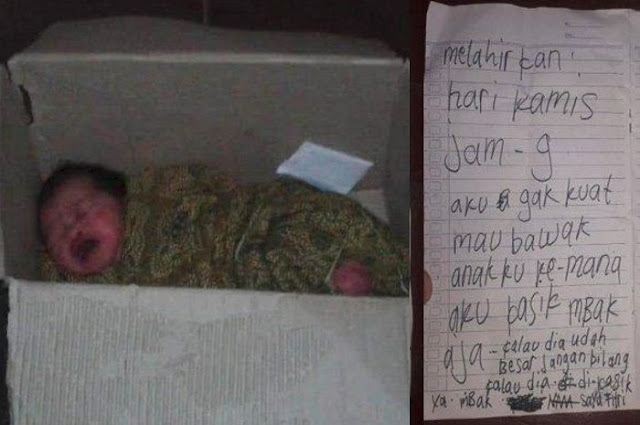 melahirkan :
hari kamis
Jam - 9
aku gak kuat
mau bawak
anakku ke-mana
aku kasik mBak
aja - kalau dia udah
Besar Jangan bilang
kalau dia di-kasik
Ya. mBak saya Fitri